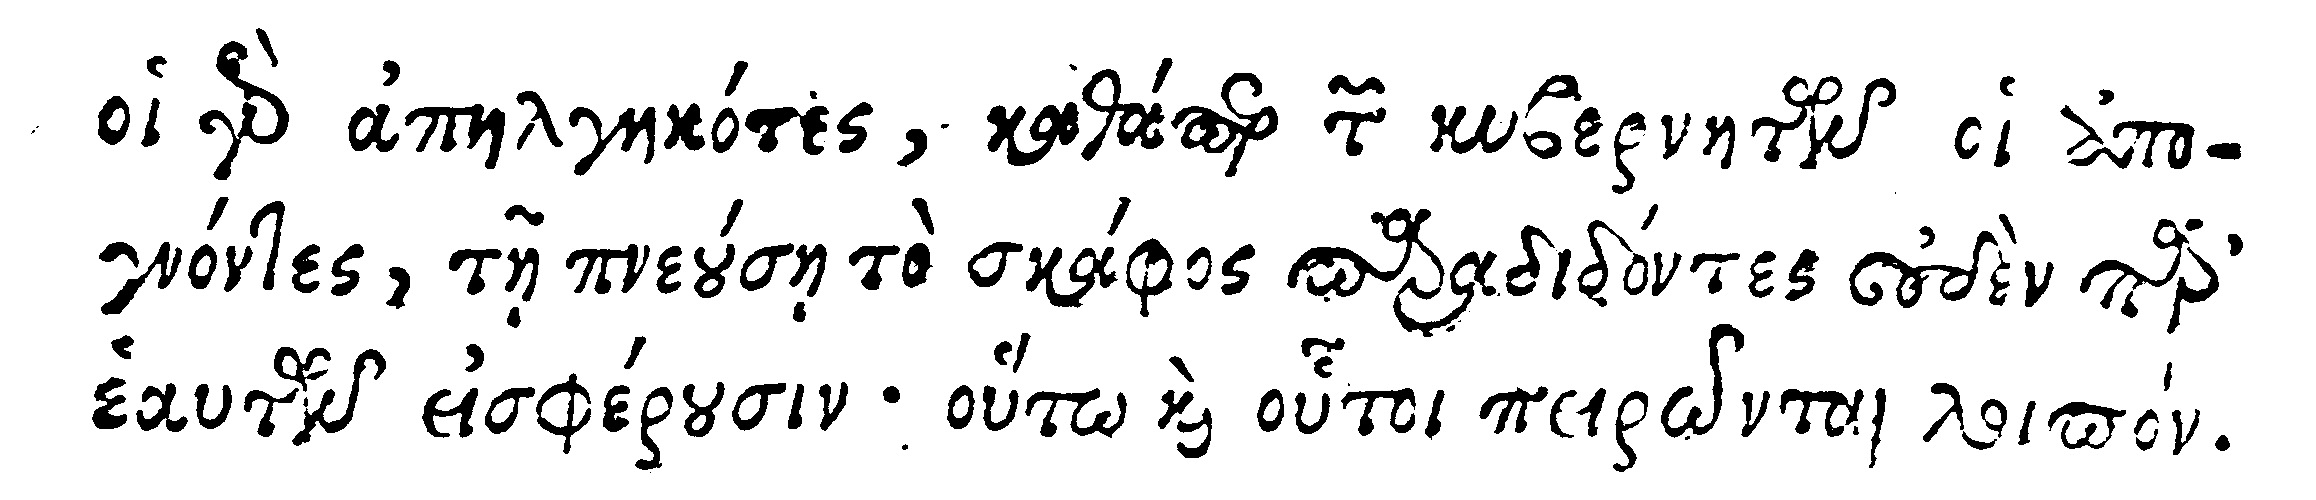 οἱ γὰρ ἀπηλγηκότες, καθάπερ τῶν κυβερνητῶν οἱ ἀπο-
γνόντες, τῇ πνεούσῃ τὸ σκάφος παραδιδόντες οὐδὲν παρ’
ἑαυτῶν εἰσφέρουσιν· οὕτω καὶ οὗτοι πειρῶνται λοιπόν.